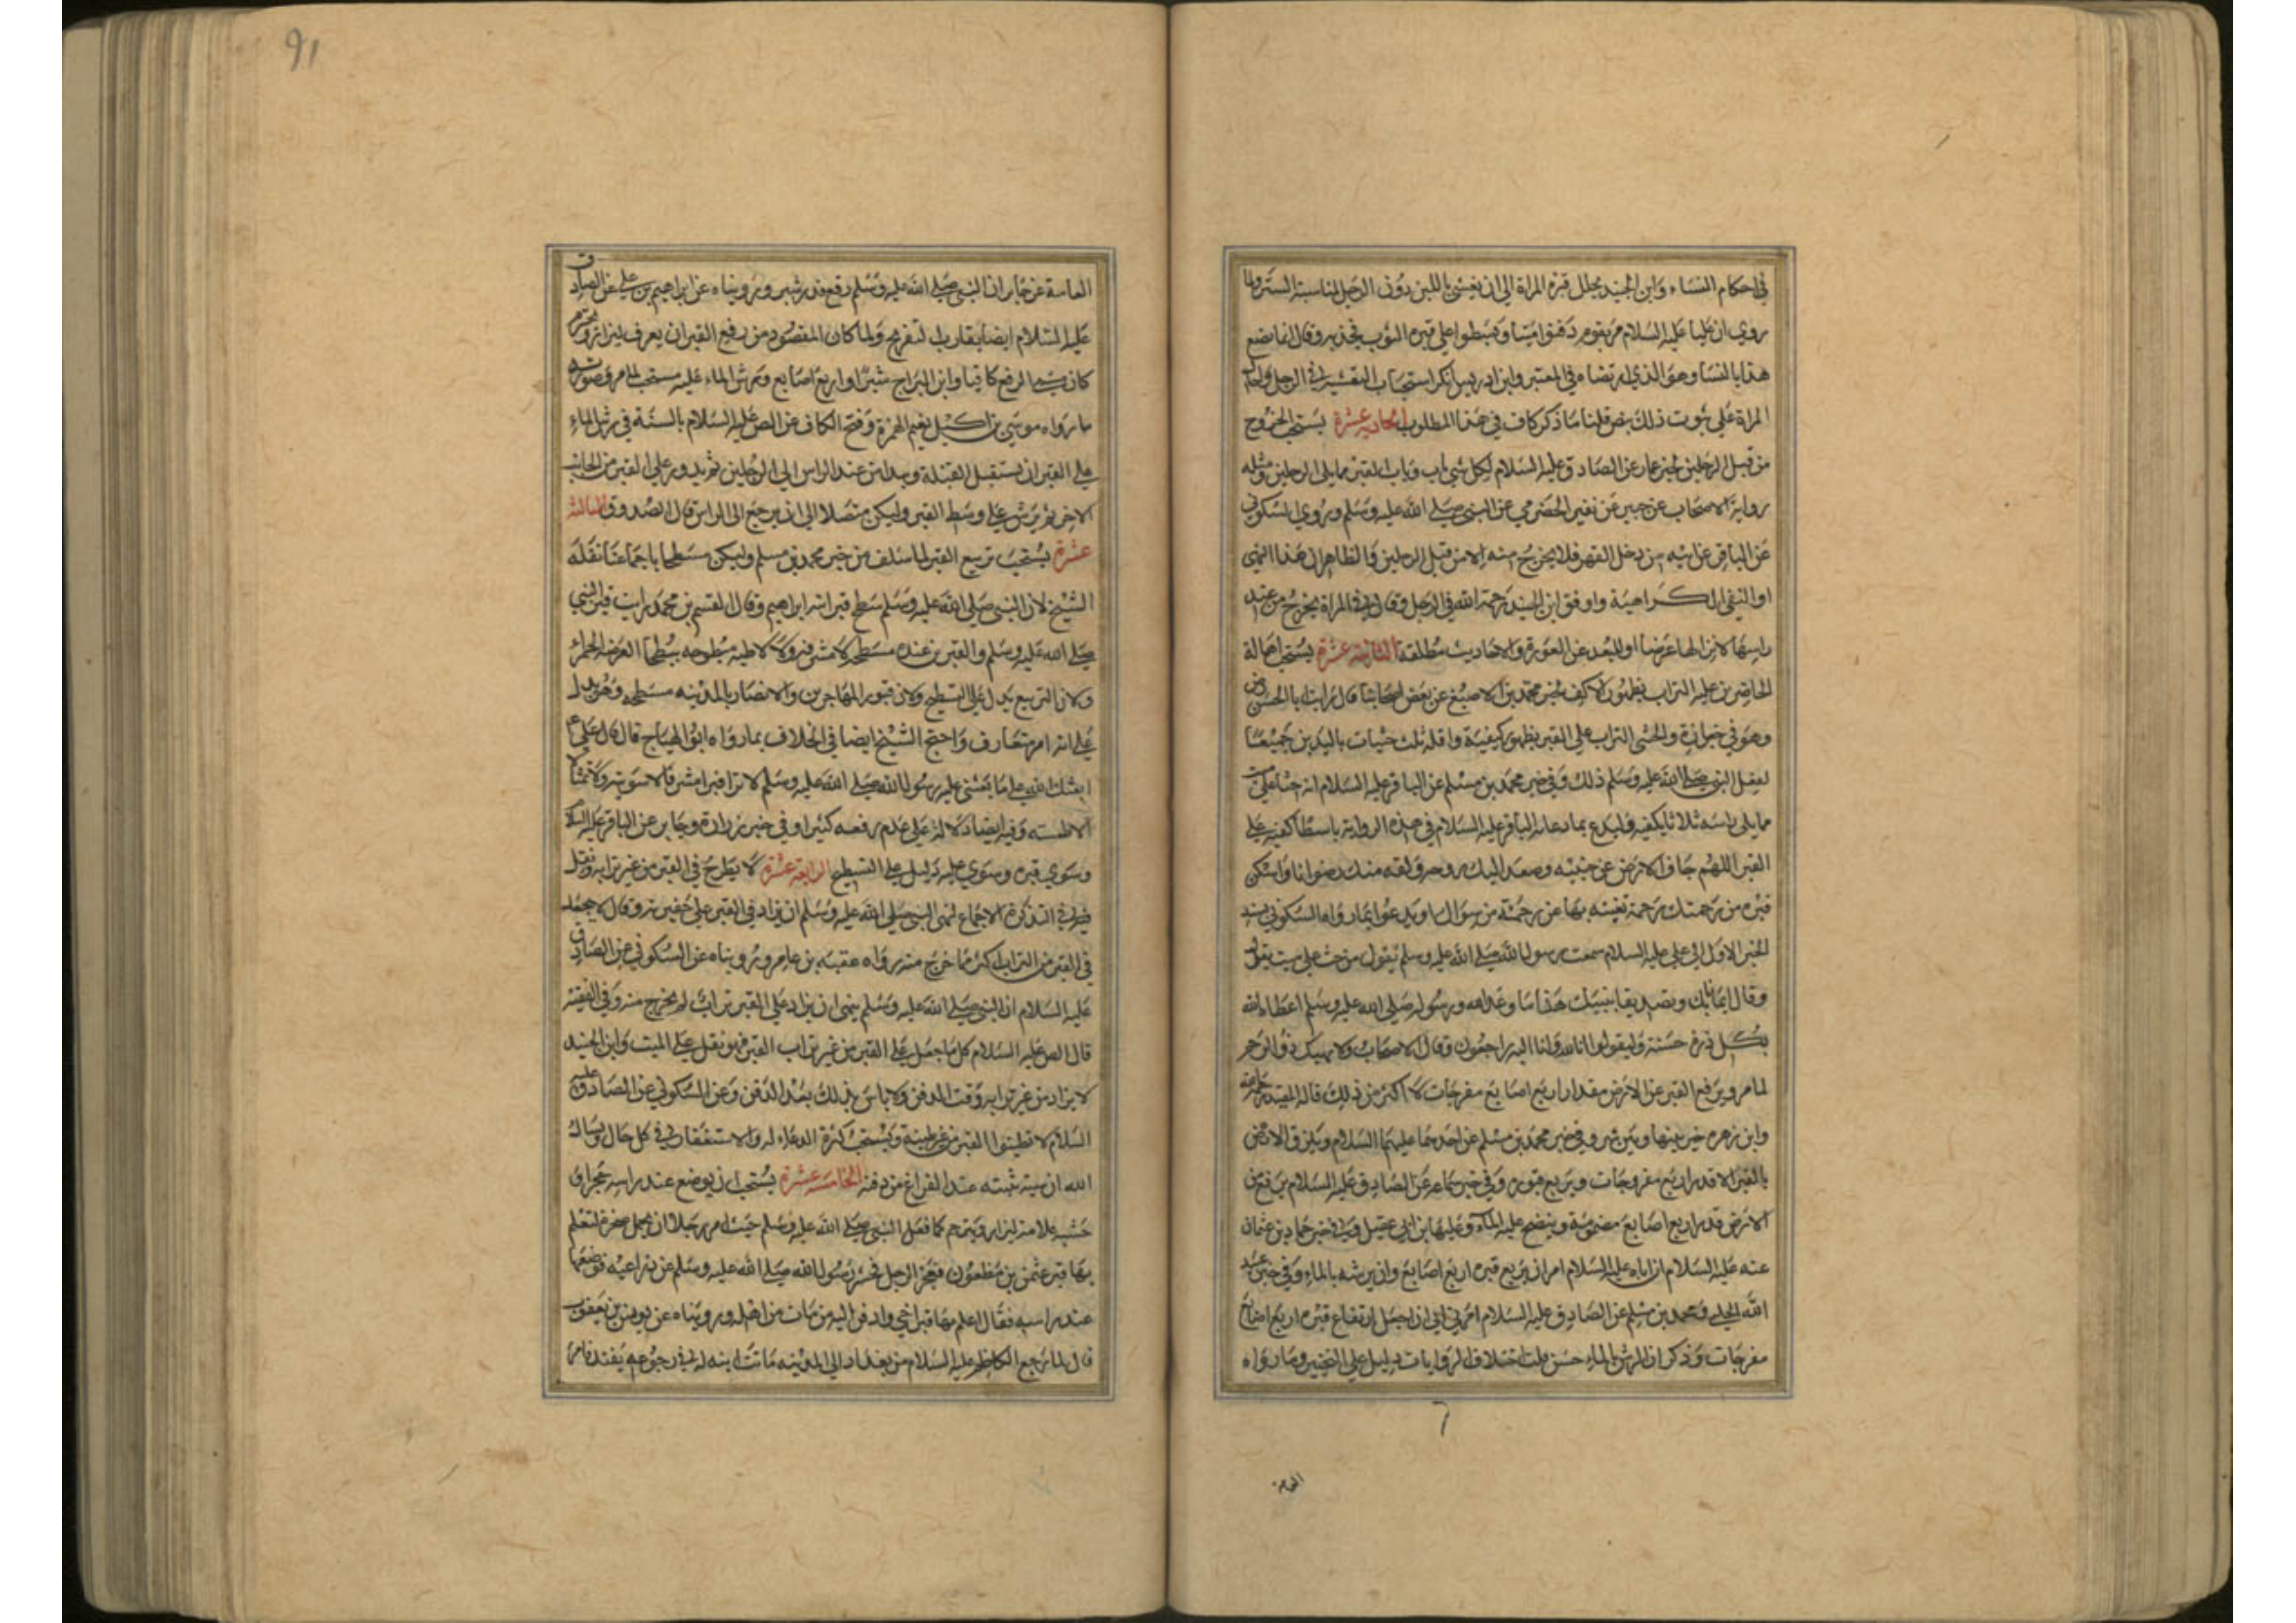 في احكام النساء وابن الجنيد يجلل قبره المراة الى ان يغشى باللبن دون الرجل لمناسبة الستر ولما
روي ان عليا عليه السلام مر بقوم دفنوا ميتا وبسطوا على قبره الثوب فجذبه وقال انما يصنع
هذا بالنساء وهو الذي ارتضاه في المعتبر وابن ادريس انكر استحباب التغشية في الرجل
المراة على ثبوت ذلك بنص قلنا ما ذكر كاف في هذا المطلوب الحادية عشرة يستحب الخروج
من قبل الرجلين لخبر عمار عن الصادق عليه السلام لكل شي باب وباب القبر مما يلي الرجلين ومثله
رواية الاصحاب عن جبير عن نفير الحضرمي عن النبي صلى الله عليه وسلم وروى السكوني
عن الباقر عن ابيه من دخل القبر فلا يخرج منه الا من قبل الرجلين والظاهر ان هذا النهي
او النفي للكراهية ووافق ابن الجنيد رحمة الله في الرجل وقال في المراة يخرج من عند
راسها لانزالها عرضا او للبعد عن العورة والاحاديث مطلقة الثانية عشرة يستحب اهالة
الحاضرين عليه التراب بظهور الاكف لخبر محمد بن الاصبغ عن بعض اصحابنا قال رايت ابا الحسن
وهو في جنازة والحثى التراب على القبر بظهر كفيه واقله ثلث حثيات باليدين جميعا
لفعل النبي صلى الله عليه وسلم ذلك وفي خبر محمد بن مسلم عن الباقر عليه السلام انه حثا على ميت
مما يلي راسه ثلاثا بكفيه وليدع بما دعا به الباقر عليه السلام في هذه الرواية باسطا كفيه على
القبر اللهم جاف الارض عن جنبيه وصعد اليك روحه ولقه منك رضوانا واسكن
قبره من رحمتك رحمة تغنيه بها عن رحمة من سواك او يدعو بما رواه السكوني بسند
الخبر الاول الى علي عليه السلام سمعت رسول الله صلى الله عليه وسلم يقول من حث على ميت يقول
وقال ايمانا بك وتصديقا بنبيك هذا ما وعد الله ورسوله صلى الله عليه وسلم اعطاه الله
بكل ذرة حسنة وليقولوا انا لله وانا اليه راجعون وقال الاصحاب ولا يهيل ذو الرحم
لما مر ويرفع القبر عن الارض مقدار اربع اصابع مفرجات لا اكثر من ذلك قاله المفيد رحمه الله
وابن زهره خير بينها وبين شبر وفي خبر محمد بن مسلم عن احدهما عليهما السلام ويلزق الارض
بالقبر الا قدر اربع مفروجات ويربع قبوره وفي خبر سماعه عن الصادق عليه السلام يرفع من
الارض قدر اربع اصابع مضمومة وينضح عليه الماء وعليها ابن ابي عقيل وفي خبر حماد بن عثمان
عنه عليه السلام ان اباه عليه السلام امر ان يربع قبره اربع اصابع وان يرشه بالماء وفي خبر عبد
الله الحلبي ومحمد بن مسلم عن الصادق عليه السلام امرني ابي ان اجعل ارتفاع قبره اربع اصابع
مفرجات وذكر ان الرش بالماء حسن قلت اختلاف الروايات دليل على التخيير وما رواه
العامة
العامة عن جابر ان النبي صلى الله عليه وسلم رفع قدر شبر وروينا ه عن ابراهيم بن علي عن الصادق
عليه السلام ايضا يقارب التفريج ولما كان المقصود من رفع القبر ان يعرف ليزار ويحترم
كان مسمى الرفع كافيا وابن البراج شبرا او اربع اصابع ويرش الماء عليه مستحب لما مر وصورته
ما رواه موسى بن اكيل بضم الهمزة وفتح الكاف عن الص عليه السلام بالسنة في رش الماء
على القبر ان يستقبل القبلة ويبدا من عند الراس الى الرجلين ثم يدور على القبر من الجانب
الاخر ثم يرش على وسط القبر وليكن متصلا الى ان يرجع الى الراس قال الصدوق الثالثة
عشرة يستحب تربيع القبر لما سلف من خبر محمد بن مسلم وليكن مسطحا باجماعنا نقله
الشيخ لان النبي صلى الله عليه وسلم سطح قبر ابنه ابراهيم وقال القسم بن محمد رايت قبر النبي
صلى الله عليه وسلم والقبرين عنده مسطحه لا مشرفه ولا لاطيه مبطوحه ببطحاء العرصه الحمراء
ولان التربيع يدل على التسطيح ولان قبور المهاجرين والانصار بالمدينه مسطحه وهو يدل
على انه امر متعارف واحتج الشيخ ايضا في الخلاف بما رواه ابو الهياج قال قال علي ع
ابعثك على ما بعثني عليه رسول الله صلى الله عليه وسلم لا ترا قبرا مشرفا الا سويته ولا تمثالا
الا طمسته وفيه ايضا دلالة على عدم رفعه كثيرا وفي خبر زرارة وجابر عن الباقر عليه السلام
وسوي قبره وسوي عليه دليل على التسطيح الرابعة عشرة لا يطرح في القبر من غير ترابه ونقل
في التذكرة الاجماع لنهي النبي صلى الله عليه وسلم ان يزاد في القبر على حفيرته وقال لا يجعل
في القبر من التراب اكثر مما خرج منه رواه عقبه بن عامر وروينا ه عن السكوني عن الصادق
عليه السلام ان النبي صلى الله عليه وسلم ينهى ان يزاد على القبر تراب لم يخرج منه وفي الفقيه
قال الص عليه السلام كل ما جعل على القبر من غير تراب القبر فهو ثقل على الميت وابن الجنيد
لا يزاد من غير ترابه وقت الدفن ولا باس بذلك بعد الدفن وعن السكوني عن الصادق عليه
السلام لا تطينوا القبر من غير طينه ويستحب كثرة الدعاء له والاستغفار في كل حال ويسال
الله ان يثبته عند الفراغ من دفنه الخامسة عشرة يستحب ان يوضع عند راسه حجر او
خشبه علامة ليزار ويترحم كما فعل النبي صلى الله عليه وسلم حيث امر رجلا ان يحمل صخرة لتعلم
بها قبر عثمن بن مظعون فعجز الرجل فحسر رسول الله صلى الله عليه وسلم عن ذراعيه فوضعها
عند راسه فقال اعلم بها قبر اخي وادفن اليه من مات من اهله وروينا ه عن يونس بن يعقوب
قال لما رجع الكاظم عليه السلام من بغداد الى المدينه ماتت ابنه له في رجوعه بفيد فامر
91